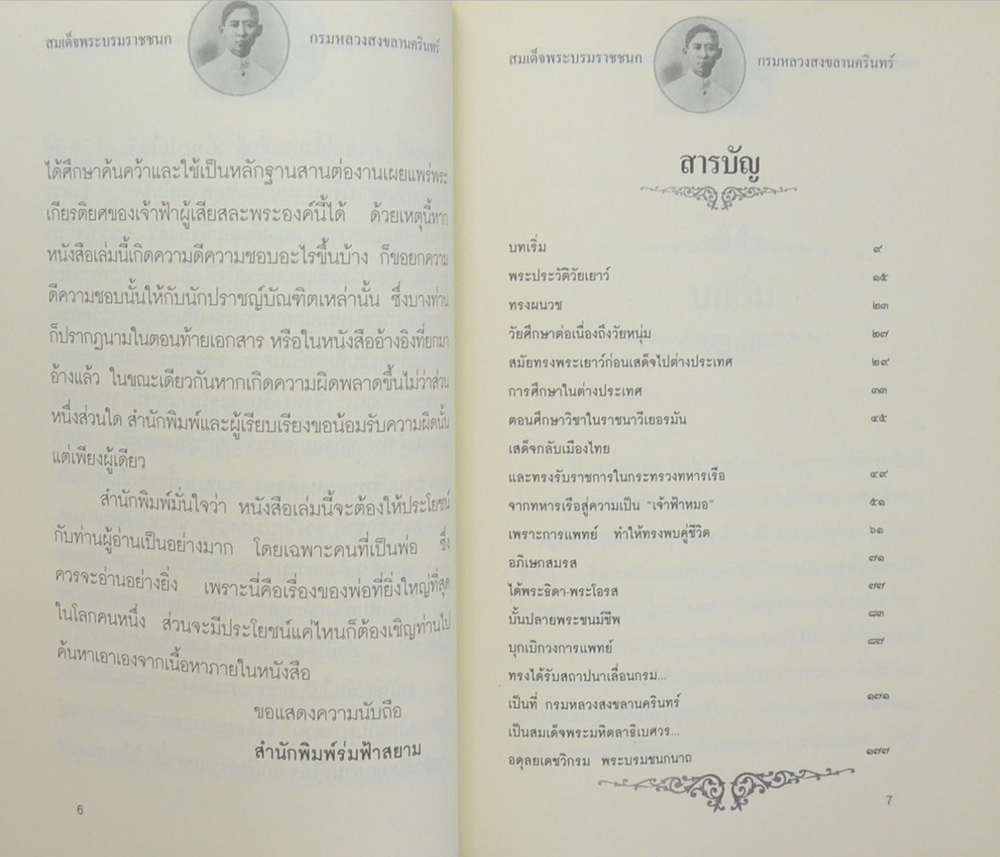 สมเด็จพระบรมราชชนก กรมหลวงสงขลานครินทร์
ได้ศึกษาค้นคว้าและใช้เป็นหลักฐานสานต่องานเผยแพร่พระ
เกียรติยศของเจ้าฟ้าผู้เสียสละพระองค์นี้ได้ ด้วยเหตุนี้หาก
หนังสือเล่มนี้เกิดความดีความชอบอะไรขึ้นบ้าง ก็ขอยกความ
ดีความชอบนั้นให้กับนักปราชญ์บัณฑิตเหล่านั้น ซึ่งบางท่าน
ก็ปรากฏนามในตอนท้ายเอกสาร หรือในหนังสืออ้างอิงที่ยกมา
อ้างแล้ว ในขณะเดียวกันหากเกิดความผิดพลาดขึ้นไม่ว่าส่วน
หนึ่งส่วนใด สำนักพิมพ์และผู้เรียบเรียงขอน้อมรับความผิดนั้น
แต่เพียงผู้เดียว
สำนักพิมพ์มั่นใจว่า หนังสือเล่มนี้จะต้องให้ประโยชน์
กับท่านผู้อ่านเป็นอย่างมาก โดยเฉพาะคนที่เป็นพ่อ ซึ่ง
ควรจะอ่านอย่างยิ่ง เพราะนี่คือเรื่องของพ่อที่ยิ่งใหญ่ที่สุด
ในโลกคนหนึ่ง ส่วนจะมีประโยชน์แค่ไหนก็ต้องเชิญท่านไป
ค้นหาเอาเองจากเนื้อหาภายในหนังสือ
ขอแสดงความนับถือ
สำนักพิมพ์ร่มฟ้าสยาม
6
สมเด็จพระบรมราชชนก กรมหลวงสงขลานครินทร์
สารบัญ
บทเริ่ม ๙
พระประวัติวัยเยาว์ ๑๕
ทรงผนวช ๒๓
วัยศึกษาต่อเนื่องถึงวัยหนุ่ม ๒๗
สมัยทรงพระเยาว์ก่อนเสด็จไปต่างประเทศ ๒๙
การศึกษาในต่างประเทศ ๓๓
ตอนศึกษาวิชาในราชนาวีเยอรมัน ๔๕
เสด็จกลับเมืองไทย
และทรงรับราชการในกระทรวงทหารเรือ ๔๙
จากทหารเรือสู่ความเป็น "เจ้าฟ้าหมอ" ๕๑
เพราะการแพทย์ ทำให้ทรงพบคู่ชีวิต ๖๑
อภิเษกสมรส ๗๑
ได้พระธิดา-พระโอรส ๗๗
บั้นปลายพระชนม์ชีพ ๘๓
บุกเบิกวงการแพทย์ ๘๗
ทรงได้รับสถาปนาเลื่อนกรม...
เป็นที่ กรมหลวงสงขลานครินทร์ ๑๗๑
เป็นสมเด็จพระมหิตลาธิเบศวร...
อดุลยเดชวิกรม พระบรมชนกนาถ ๑๗๗
7